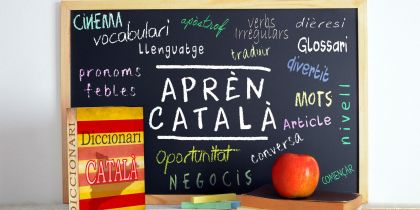 CINEMA
vocabulari
apòstrof
verbs
irregulars
dièresi
Llenguatge
traduir
Glossari
pronoms
febles
divertit
APRÈN
CATALÀ
MOTS
nivell
Article
Oportunitat
conversa
NEGOCIS
COMENÇAR
DICCIONARI
Diccionari
CATALÀ